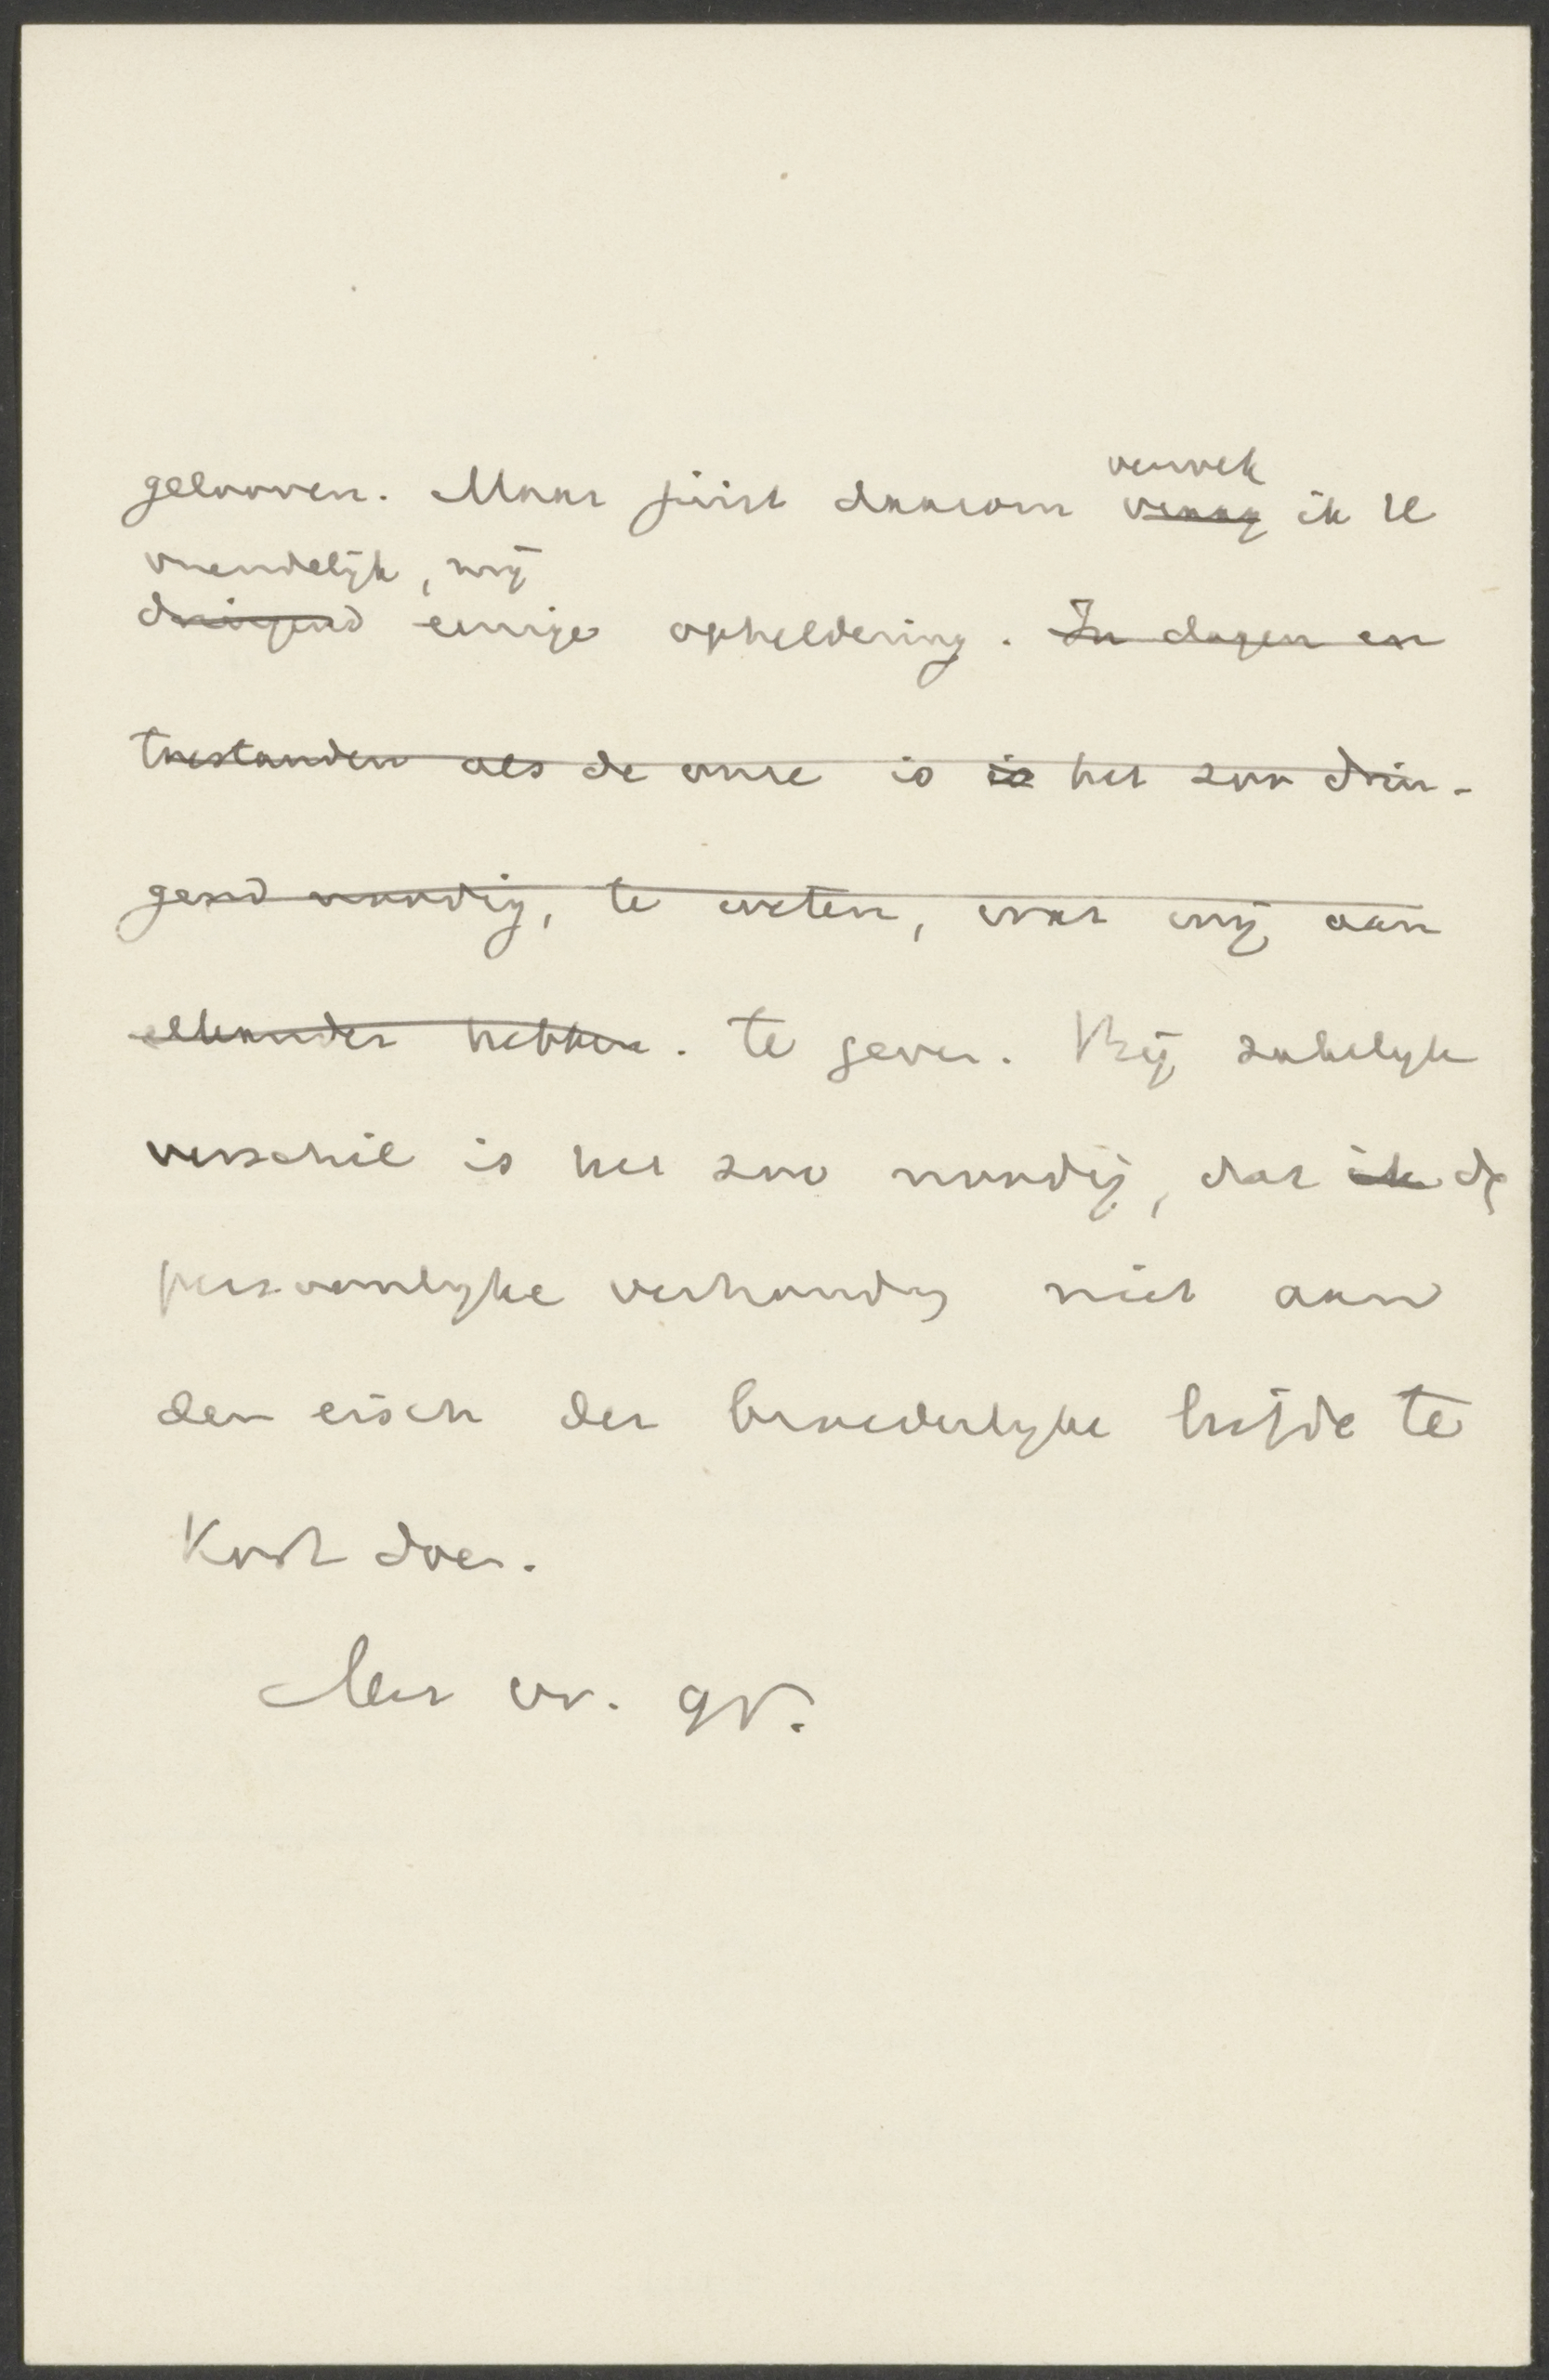 verzoek
gelooven. Maar juist daarom vraag ik U
vriendelijk, mij
dringend eenige opheldering. In dagen en
toestanden als de onze is is het zoo drin-
gend noodig, te weten, wat wij aan
elkander hebben. te geven. Bij zakelijk
verschil is het zoo noodig, dat ik de
persoonlijke verhoudg niet aan
den eisch der broederlijke liefde te
Kort doen.
Met vr. gr.